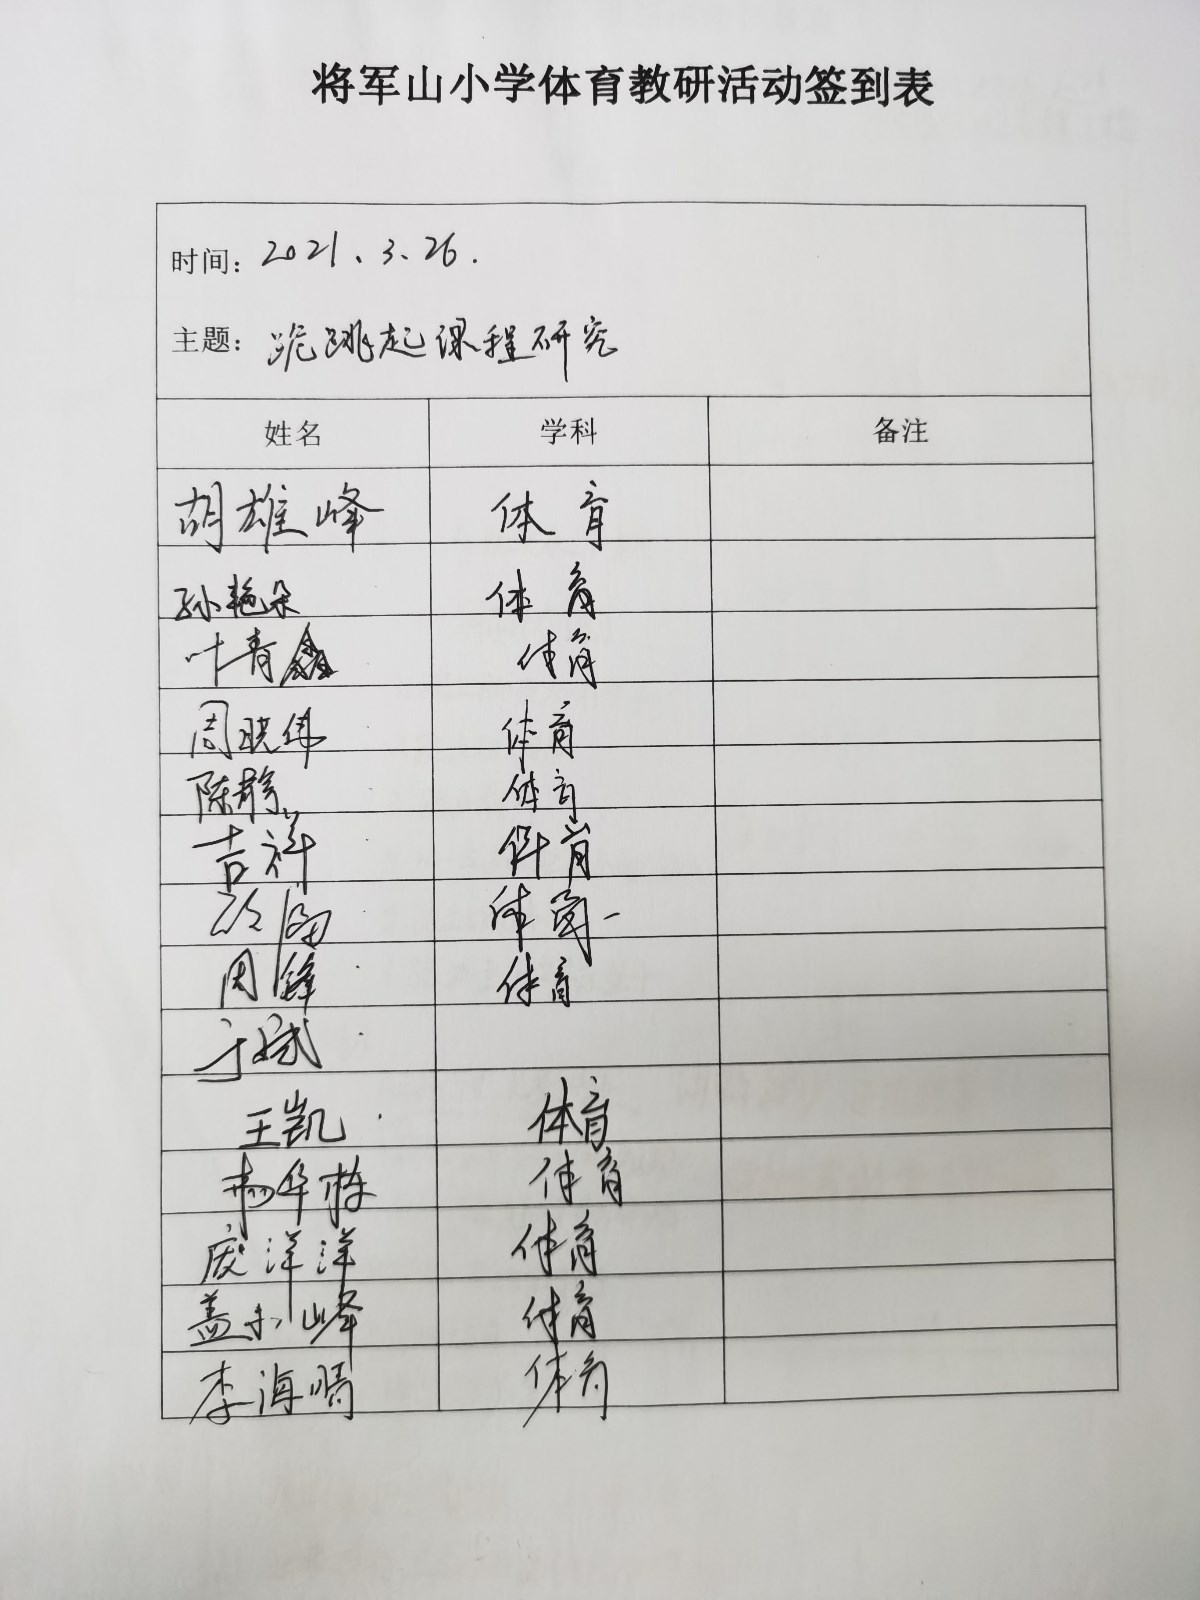 将军山小学体育教研活动签到表
时间: 2021、3、26.
主题: 跪跳起课程研究
姓名 学科 备注
胡雄峰 体育
孙艳朵 体育
叶青鑫 体育
周晓伟 体育
陈静 体育
吉祥 体育
体育
周锋 体育
于斌
王凯 体育
杨华栋 体育
庞洋洋 体育
盖小峰 体育
李海晴 体育